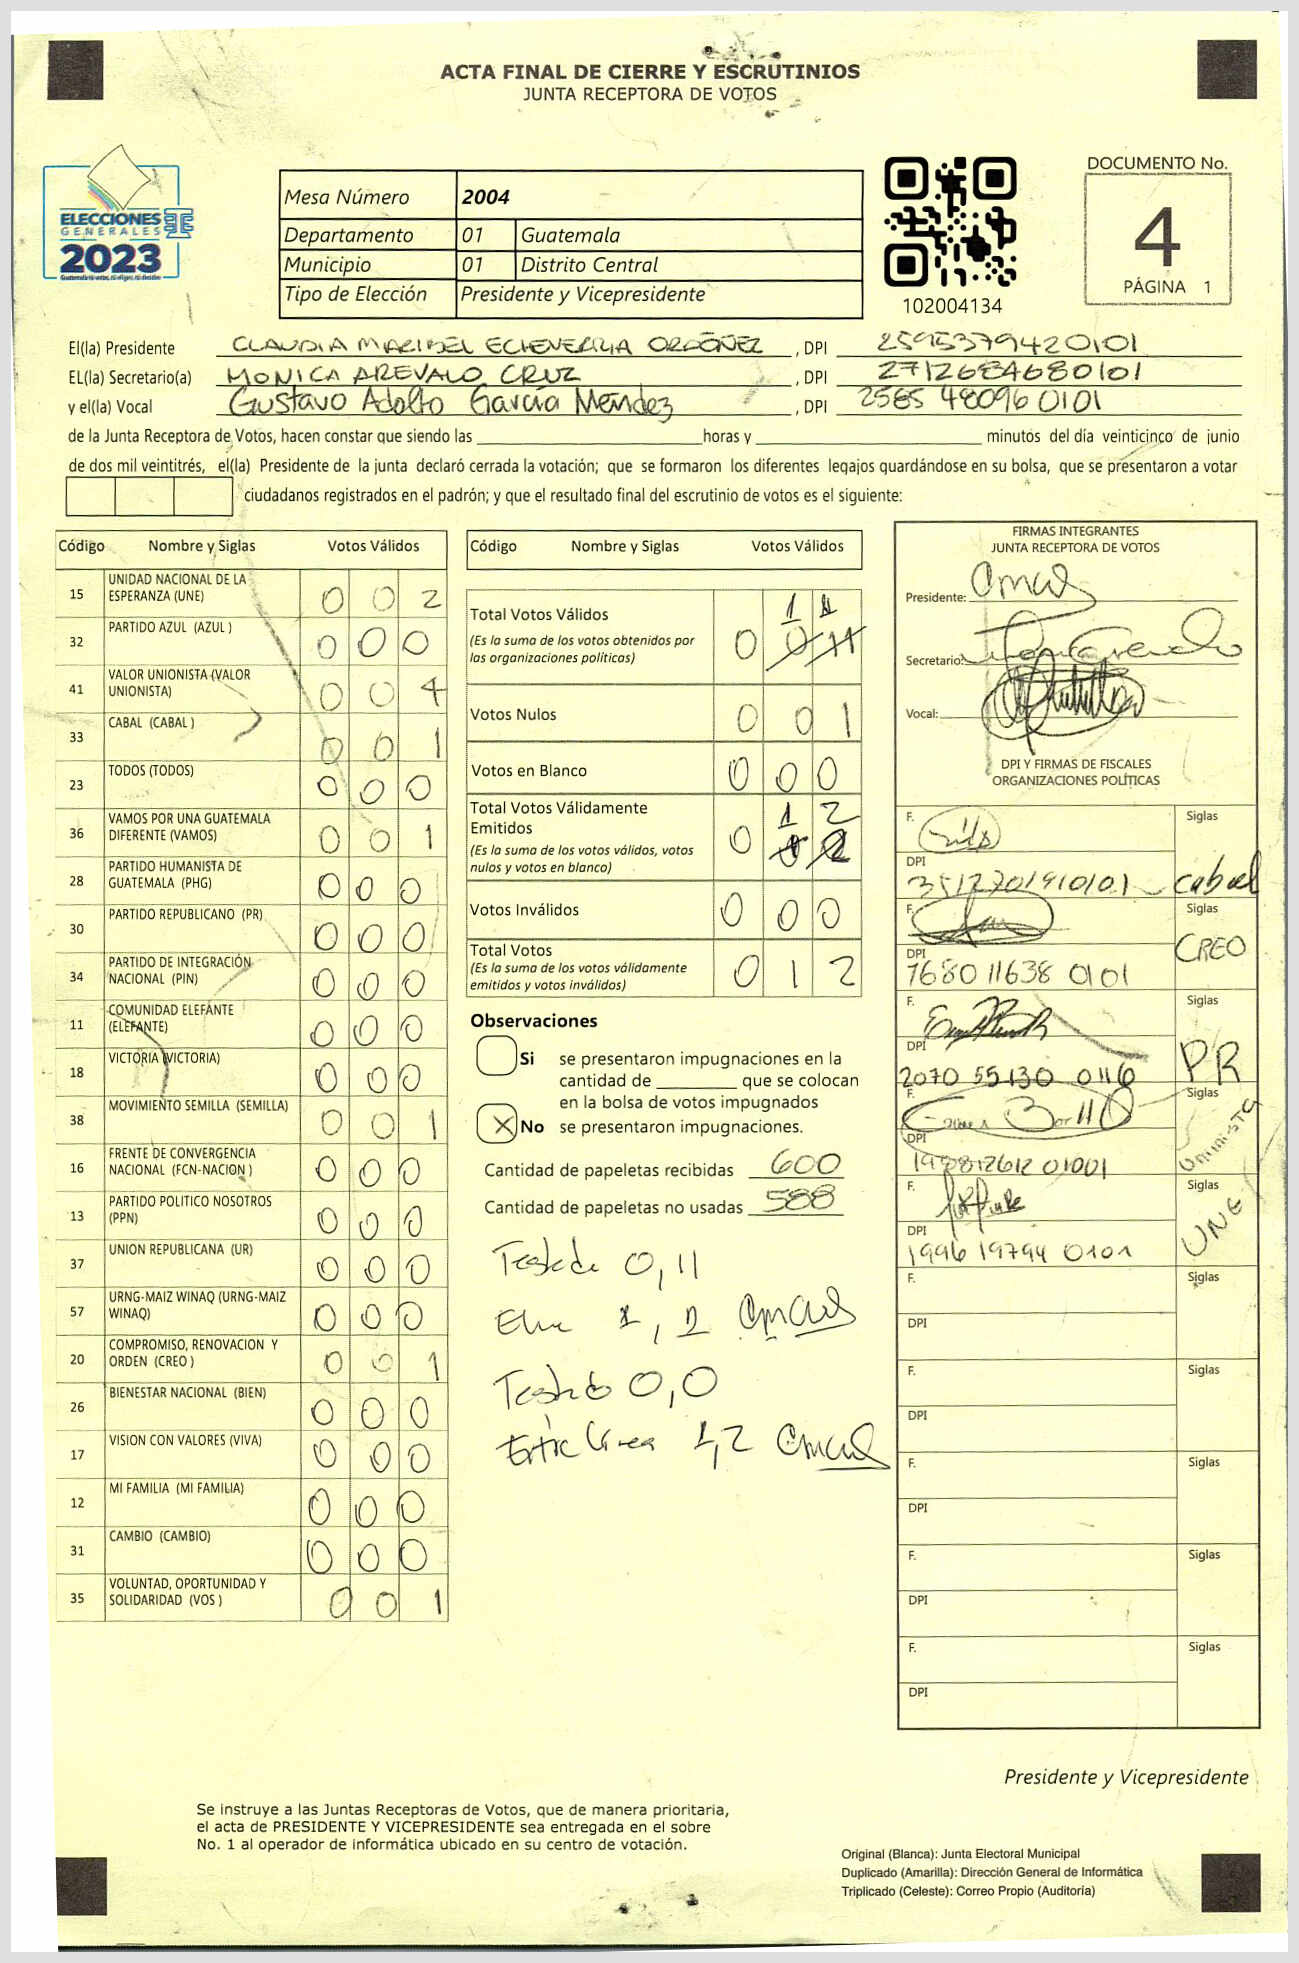 ACTA FINAL DE CIERRE Y ESCRUTINIOS
JUNTA RECEPTORA DE VOTOS
ELECCIONES
GENERALES
2023
Mesa Número 2004
Departamento 01 Guatemala
Municipio 01 Distrito Central
Tipo de Elección Presidente y Vicepresidente
102004134
DOCUMENTO No.
4
PÁGINA 1
El(la) Presidente CLAUDIA MARIBEL ECHEVERRIA ORDOÑEZ , DPI 2595379420101
EL(la) Secretario(a) MONICA AREVALO CRUZ , DPI 2712684680101
y el(la) Vocal Gustavo Adolfo García Méndez , DPI 2585 48096 0101
de la Junta Receptora de Votos, hacen constar que siendo las horas y minutos del día veinticinco de junio
de dos mil veintitrés, el(la) Presidente de la junta declaró cerrada la votación; que se formaron los diferentes legajos guardándose en su bolsa, que se presentaron a votar
ciudadanos registrados en el padrón; y que el resultado final del escrutinio de votos es el siguiente:
Código Nombre y Siglas Votos Válidos
15 UNIDAD NACIONAL DE LA ESPERANZA (UNE) 0 0 2
32 PARTIDO AZUL (AZUL ) 0 0 0
41 VALOR UNIONISTA (VALOR UNIONISTA) 0 0 4
33 CABAL (CABAL ) 0 0 1
23 TODOS (TODOS) 0 0 0
36 VAMOS POR UNA GUATEMALA DIFERENTE (VAMOS) 0 0 1
28 PARTIDO HUMANISTA DE GUATEMALA (PHG) 0 0 0
30 PARTIDO REPUBLICANO (PR) 0 0 0
34 PARTIDO DE INTEGRACIÓN NACIONAL (PIN) 0 0 0
11 COMUNIDAD ELEFANTE (ELEFANTE) 0 0 0
18 VICTORIA (VICTORIA) 0 0 0
38 MOVIMIENTO SEMILLA (SEMILLA) 0 0 1
16 FRENTE DE CONVERGENCIA NACIONAL (FCN-NACION ) 0 0 0
13 PARTIDO POLITICO NOSOTROS (PPN) 0 0 0
37 UNION REPUBLICANA (UR) 0 0 0
57 URNG-MAIZ WINAQ (URNG-MAIZ WINAQ) 0 0 0
20 COMPROMISO, RENOVACION Y ORDEN (CREO ) 0 0 1
26 BIENESTAR NACIONAL (BIEN) 0 0 0
17 VISION CON VALORES (VIVA) 0 0 0
12 MI FAMILIA (MI FAMILIA) 0 0 0
31 CAMBIO (CAMBIO) 0 0 0
35 VOLUNTAD, OPORTUNIDAD Y SOLIDARIDAD (VOS ) 0 0 1
Código Nombre y Siglas Votos Válidos
Total Votos Válidos
(Es la suma de los votos obtenidos por
las organizaciones políticas)
0 0 11
1
Votos Nulos 0 0 1
Votos en Blanco 0 0 0
Total Votos Válidamente
Emitidos
(Es la suma de los votos válidos, votos
nulos y votos en blanco)
1 2
0
Votos Inválidos 0 0 0
Total Votos
(Es la suma de los votos válidamente
emitidos y votos inválidos)
0 1 2
Observaciones
Si se presentaron impugnaciones en la
cantidad de que se colocan
en la bolsa de votos impugnados
X No se presentaron impugnaciones.
Cantidad de papeletas recibidas 600
Cantidad de papeletas no usadas 588
0, 11
Testado 0,0
Entre línea 1,2
FIRMAS INTEGRANTES
JUNTA RECEPTORA DE VOTOS
Presidente:
Secretario:
Vocal:
DPI Y FIRMAS DE FISCALES
ORGANIZACIONES POLÍTICAS
F. Siglas
DPI
3512701910101 Cabal
F. Siglas
DPI CREO
7680 11638 0101
F. Siglas
DPI PR
2070 55130 0116
F. Siglas
DPI Unionista
F. Siglas
DPI UNE
1996 19794 0101
F. Siglas
DPI
F. Siglas
DPI
F. Siglas
DPI
F. Siglas
DPI
F. Siglas
DPI
Presidente y Vicepresidente
Se instruye a las Juntas Receptoras de Votos, que de manera prioritaria,
el acta de PRESIDENTE Y VICEPRESIDENTE sea entregada en el sobre
No. 1 al operador de informática ubicado en su centro de votación.
Original (Blanca): Junta Electoral Municipal
Duplicado (Amarilla): Dirección General de Informática
Triplicado (Celeste): Correo Propio (Auditoría)